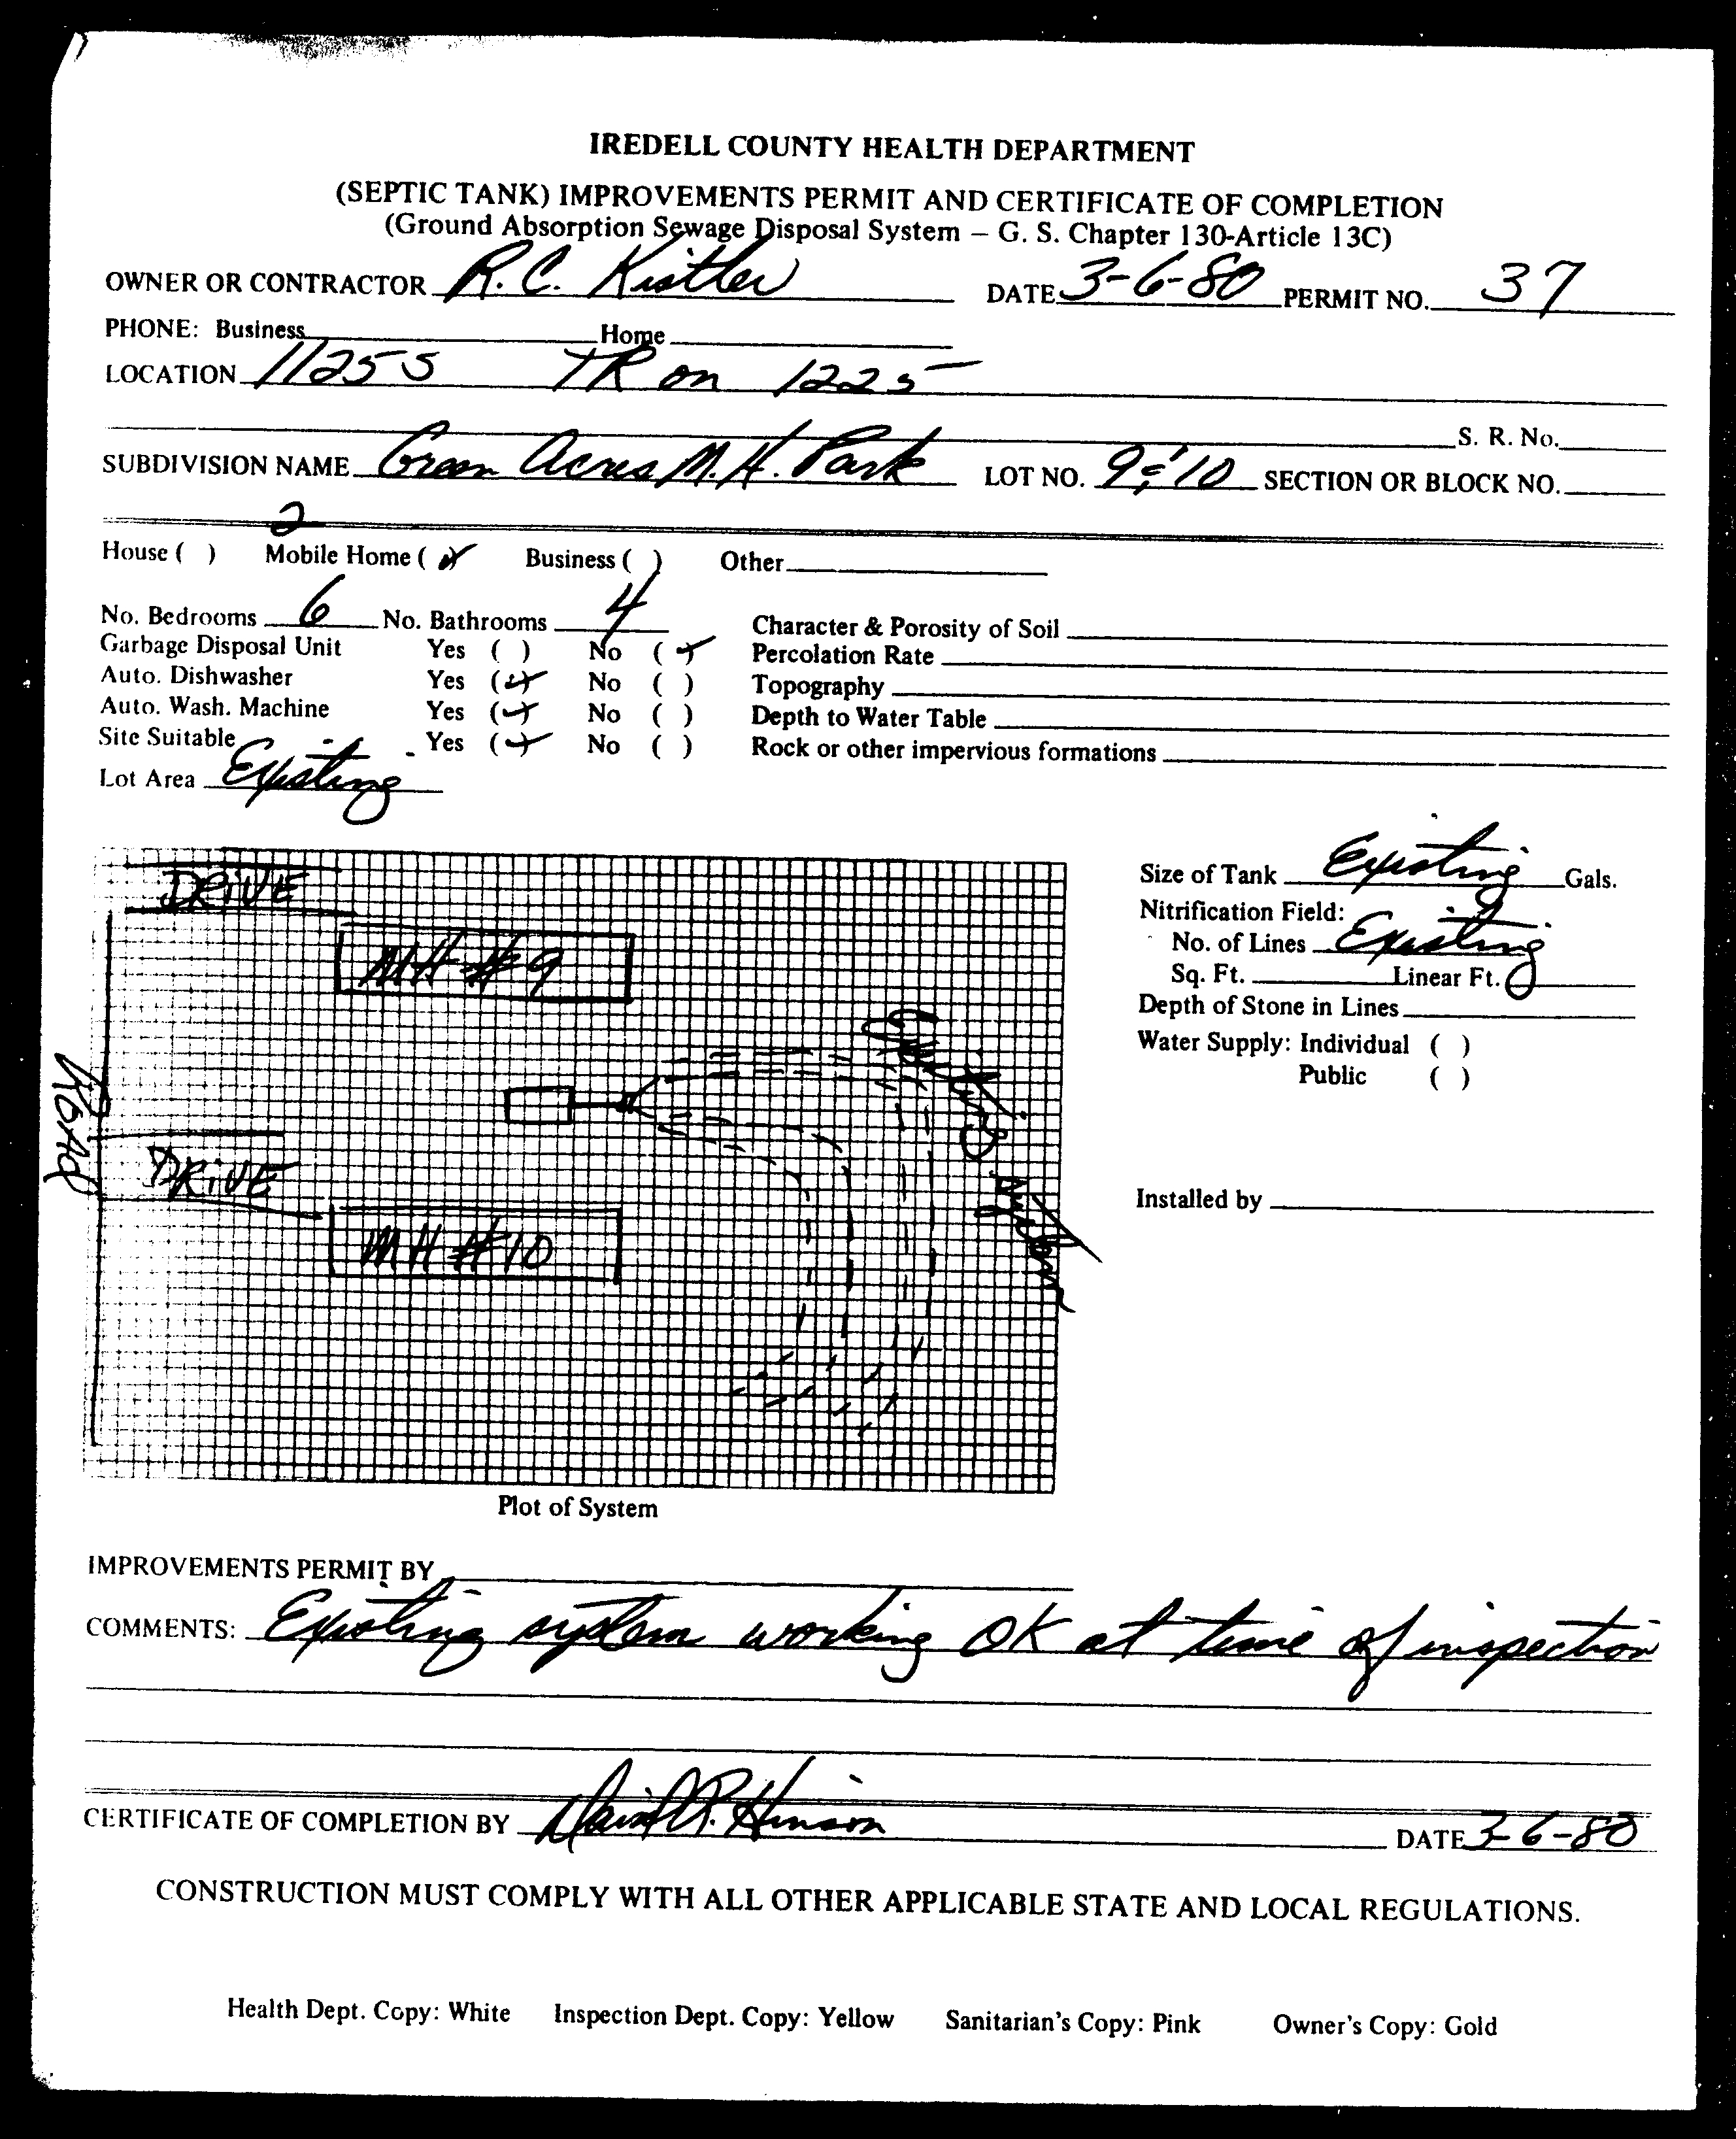 IREDELL COUNTY HEALTH DEPARTMENT
(SEPTIC TANK) IMPROVEMENTS PERMIT AND CERTIFICATE OF COMPLETION
(Ground Absorption Sewage Disposal System – G. S. Chapter 130-Article 13C)
OWNER OR CONTRACTOR R. C. Kistler DATE 3-6-80 PERMIT NO. 37
PHONE: Business Home
LOCATION 1125 S TR on 1225
S. R. No.
SUBDIVISION NAME Green Acres M. H. Park LOT NO. 9 & 10 SECTION OR BLOCK NO.
2
House ( ) Mobile Home (✓) Business ( ) Other
No. Bedrooms 6 No. Bathrooms 4 Character & Porosity of Soil
Garbage Disposal Unit Yes ( ) No (✓) Percolation Rate
Auto. Dishwasher Yes (✓) No ( ) Topography
Auto. Wash. Machine Yes (✓) No ( ) Depth to Water Table
Site Suitable Yes (✓) No ( ) Rock or other impervious formations
Lot Area Existing
Size of Tank Existing Gals.
Nitrification Field:
No. of Lines Existing
Sq. Ft. Linear Ft.
Depth of Stone in Lines
Water Supply: Individual ( )
Public ( )
Installed by
DRIVE
MH #9
Existing System
Road
DRIVE
MH #10
Plot of System
IMPROVEMENTS PERMIT BY
COMMENTS: Existing system working OK at time of inspection
CERTIFICATE OF COMPLETION BY David R. Hinson DATE 3-6-80
CONSTRUCTION MUST COMPLY WITH ALL OTHER APPLICABLE STATE AND LOCAL REGULATIONS.
Health Dept. Copy: White Inspection Dept. Copy: Yellow Sanitarian's Copy: Pink Owner's Copy: Gold